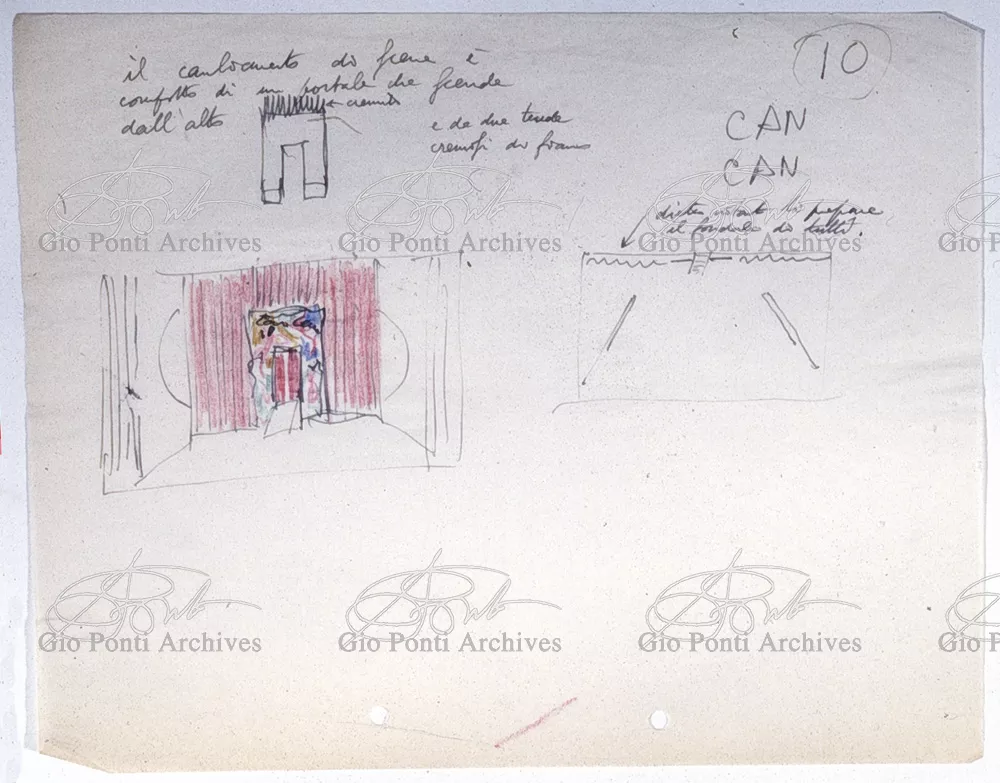 il cambiamento di scena è
composto di un portale che scende
dall'alto
e da due tende
cremisi di fianco
10
CAN
CAN
dietro intanto si prepara
il fondale di tutti.
Gio Ponti Archives
Gio Ponti Archives
Gio Ponti Archives
Gio Po
Gio Ponti Archives
Gio Ponti Archives
Gio Ponti Archives
Gio Po